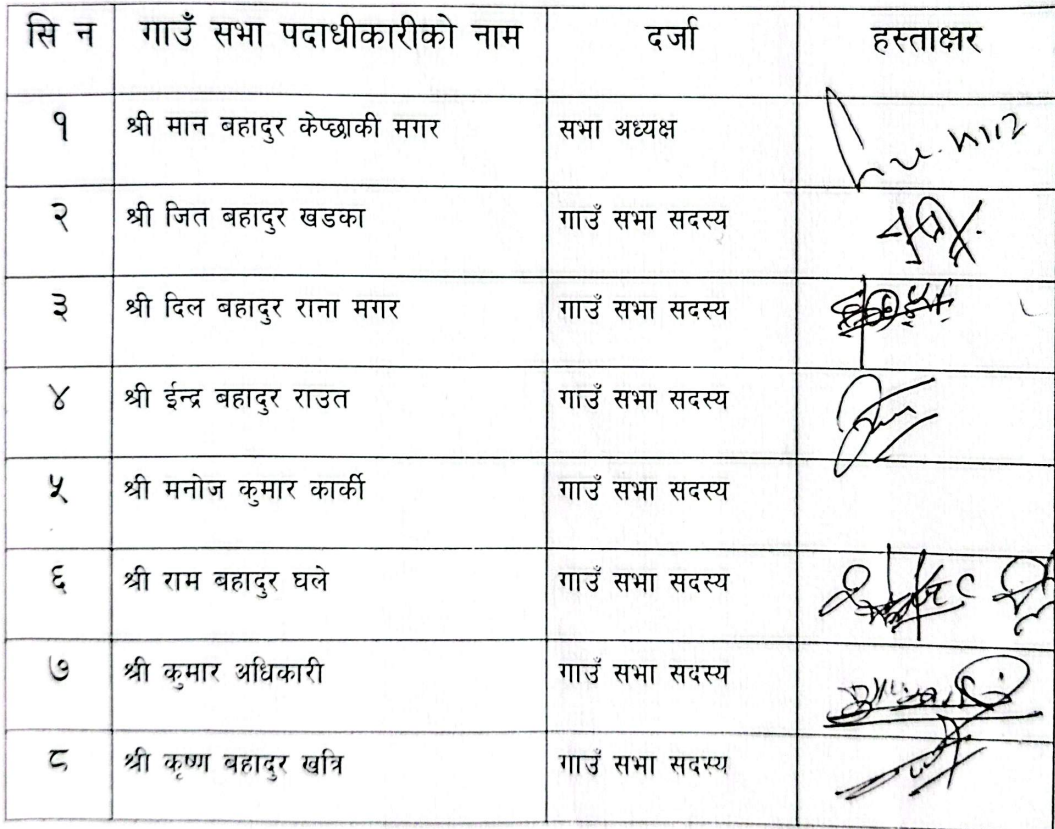 सि न गाउँ सभा पदाधीकारीको नाम दर्जा हस्ताक्षर
१ श्री मान बहादुर केप्छाकी मगर सभा अध्यक्ष
२ श्री जित बहादुर खडका गाउँ सभा सदस्य
३ श्री दिल बहादुर राना मगर गाउँ सभा सदस्य
४ श्री ईन्द्र बहादुर राउत गाउँ सभा सदस्य
५ श्री मनोज कुमार कार्की गाउँ सभा सदस्य
६ श्री राम बहादुर घले गाउँ सभा सदस्य
७ श्री कुमार अधिकारी गाउँ सभा सदस्य
८ श्री कृष्ण बहादुर खत्रि गाउँ सभा सदस्य